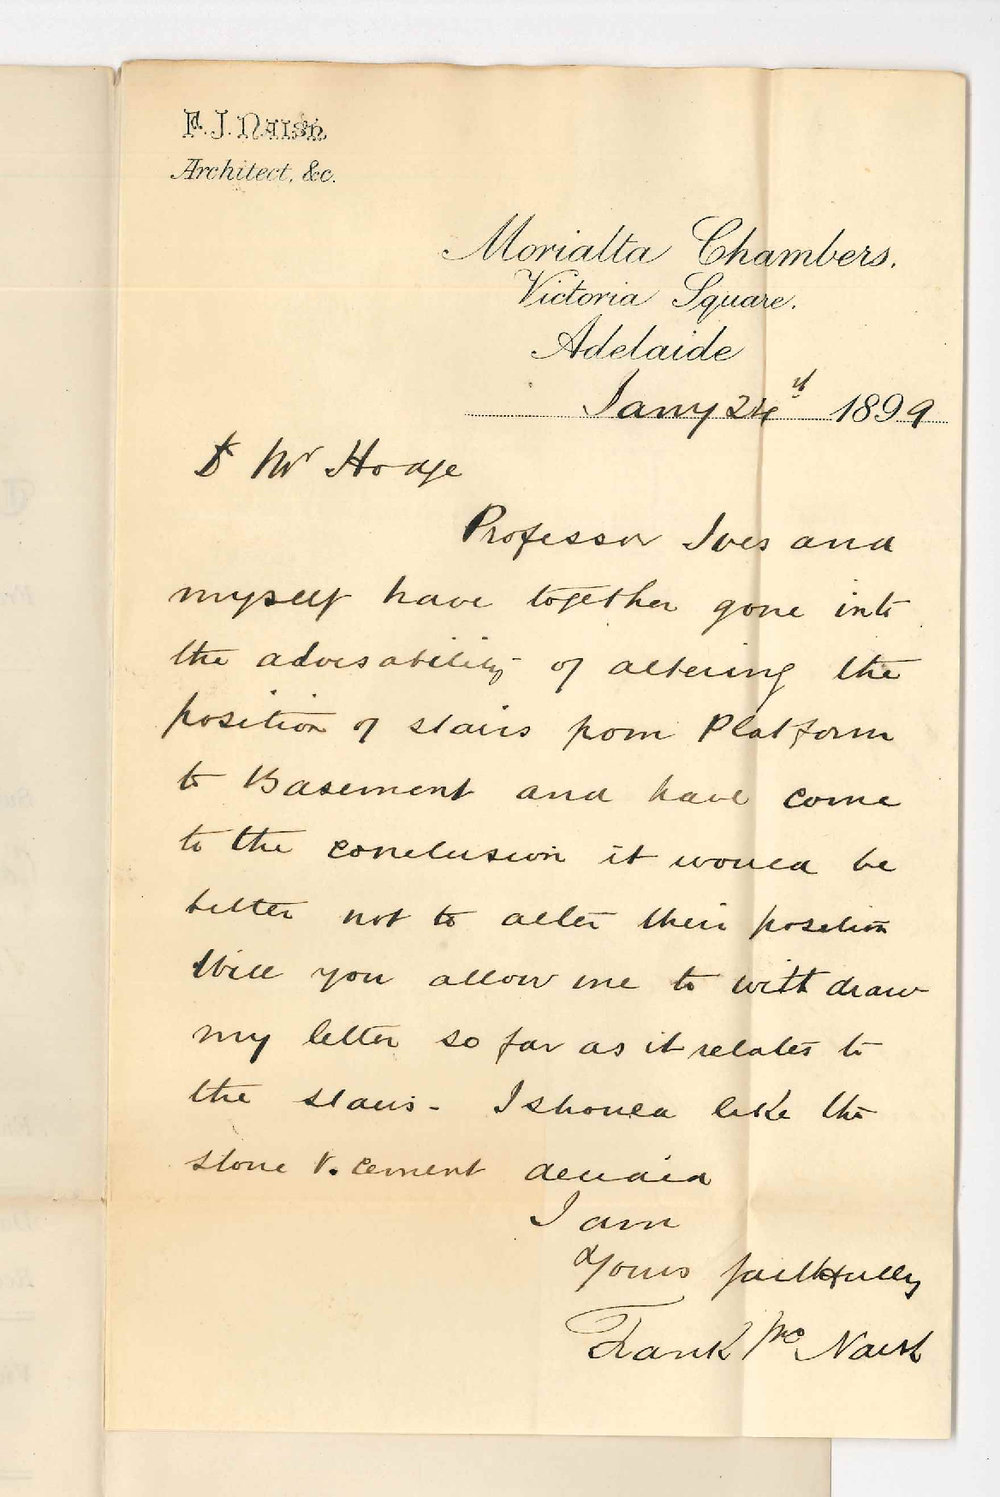 F. J. Naish,
Architect, &c.
Morialta Chambers.
Victoria Square.
Adelaide
Jany 24th 1899
Dr Mr Hodge
Professor Ives and
myself have together gone into
the advisability of altering the
position of stairs from Platform
to Basement and have come
to the conclusion it would be
better not to alter their position
Will you allow me to withdraw
my letter so far as it relates to
the stairs - I should like the
stone v. cement decided
I am
Yours faithfully
Frank Naish